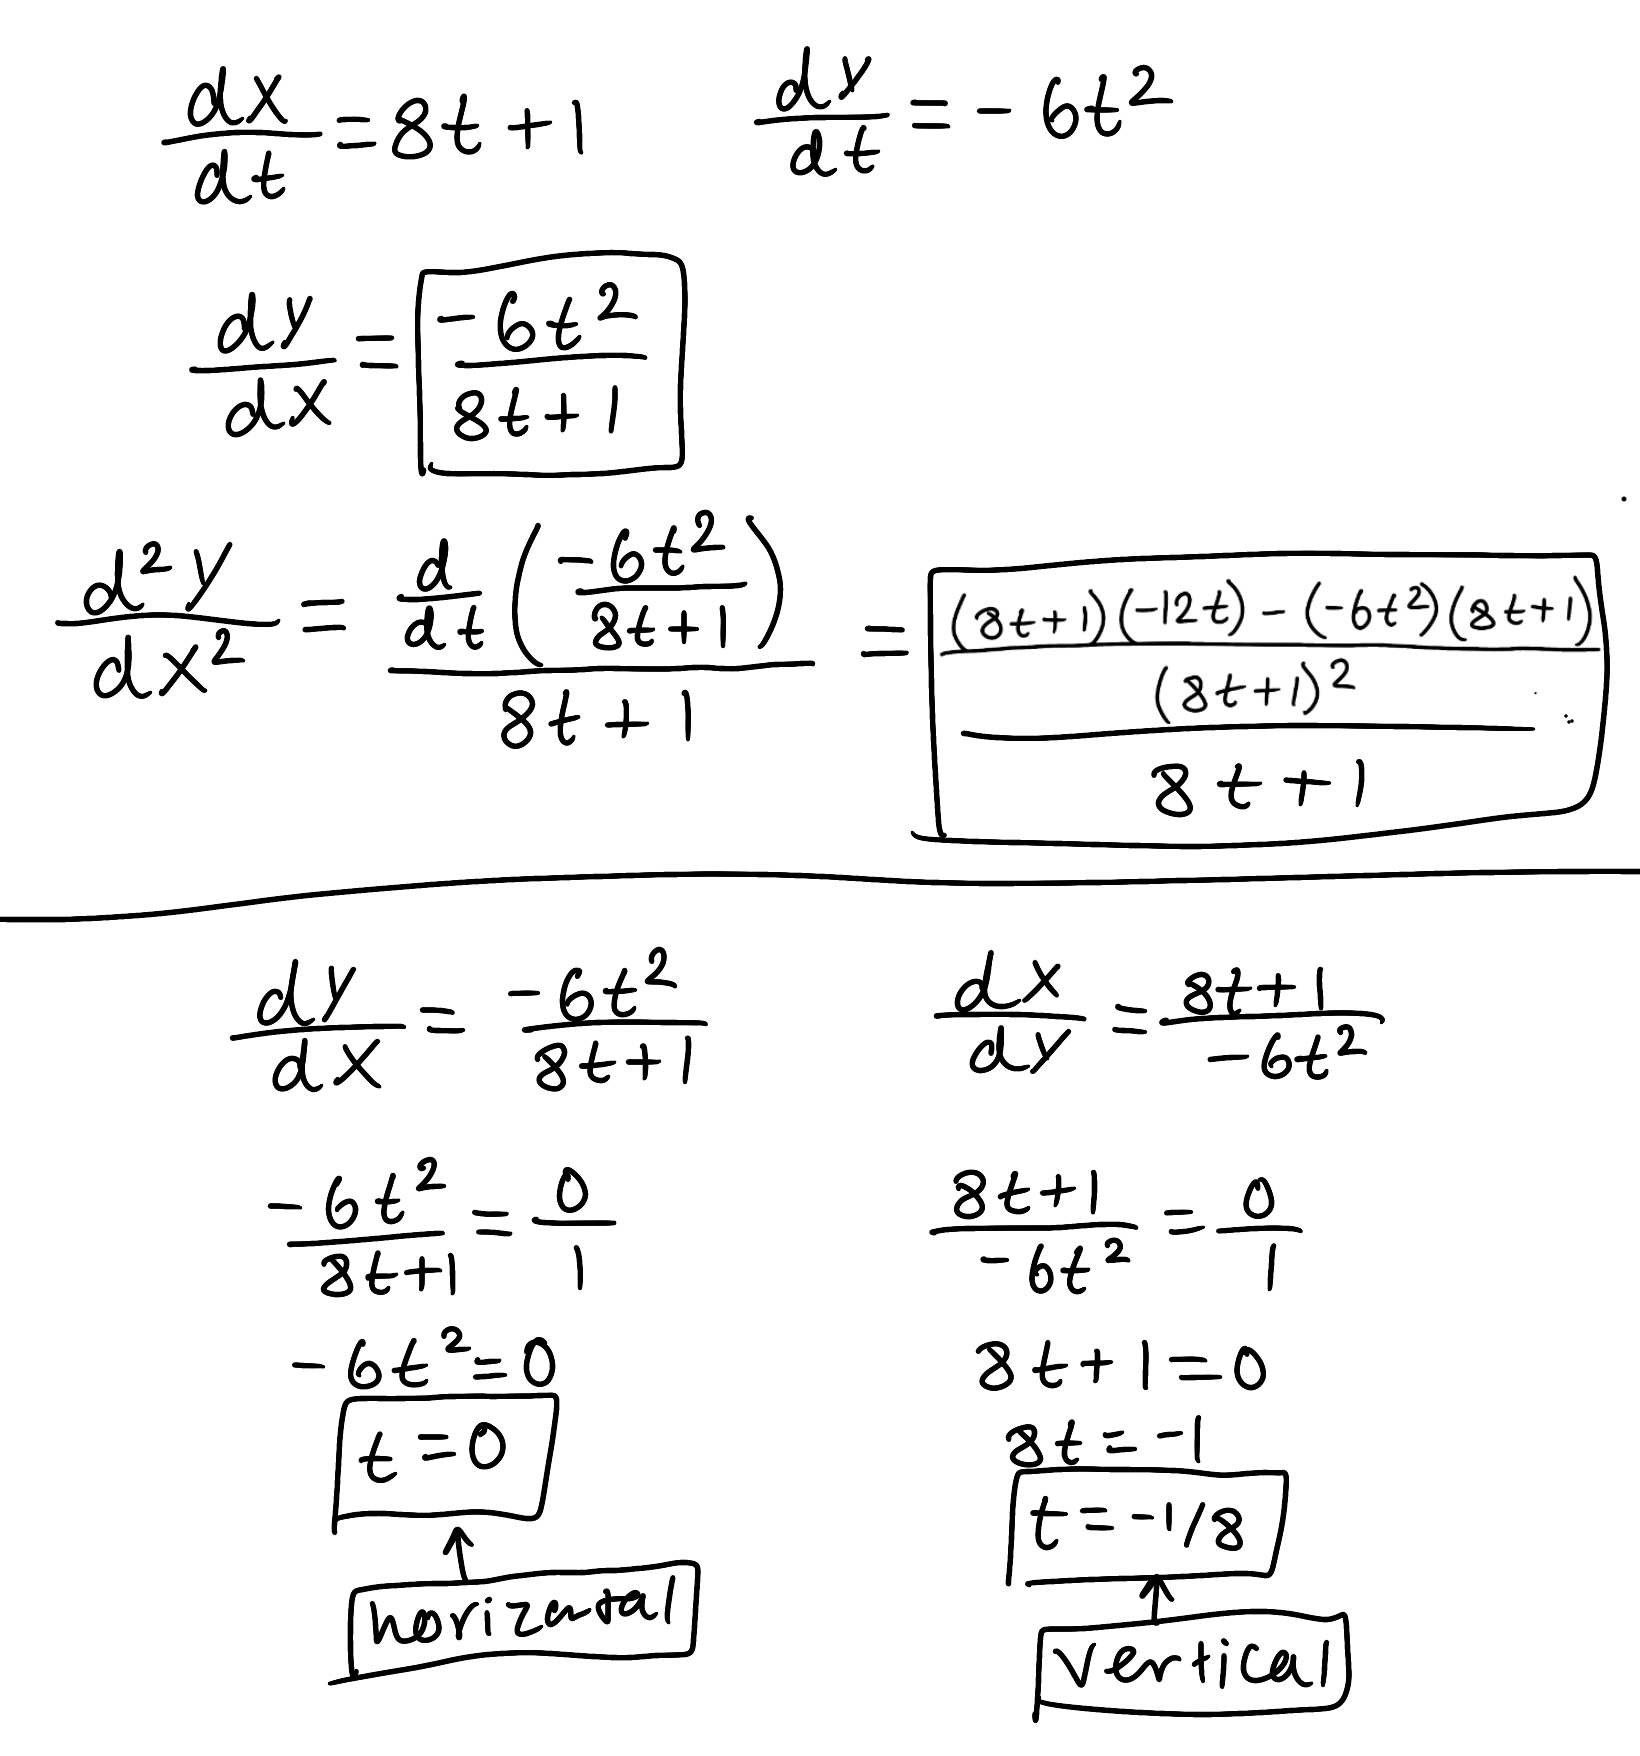 dx/dt = 8t + 1    dy/dt = - 6t²
dy/dx = -6t²/(8t + 1)
d²y/dx² = (d/dt (-6t²/(8t+1)))/(8t + 1) = (((8t+1)(-12t) - (-6t²)(8t+1))/(8t+1)²)/(8t + 1)
dy/dx = -6t²/(8t+1)    dx/dy = (8t+1)/(-6t²)
-6t²/(8t+1) = 0/1    (8t+1)/(-6t²) = 0/1
-6t² = 0    8t + 1 = 0
t = 0    8t = -1
t = -1/8
horizontal    vertical